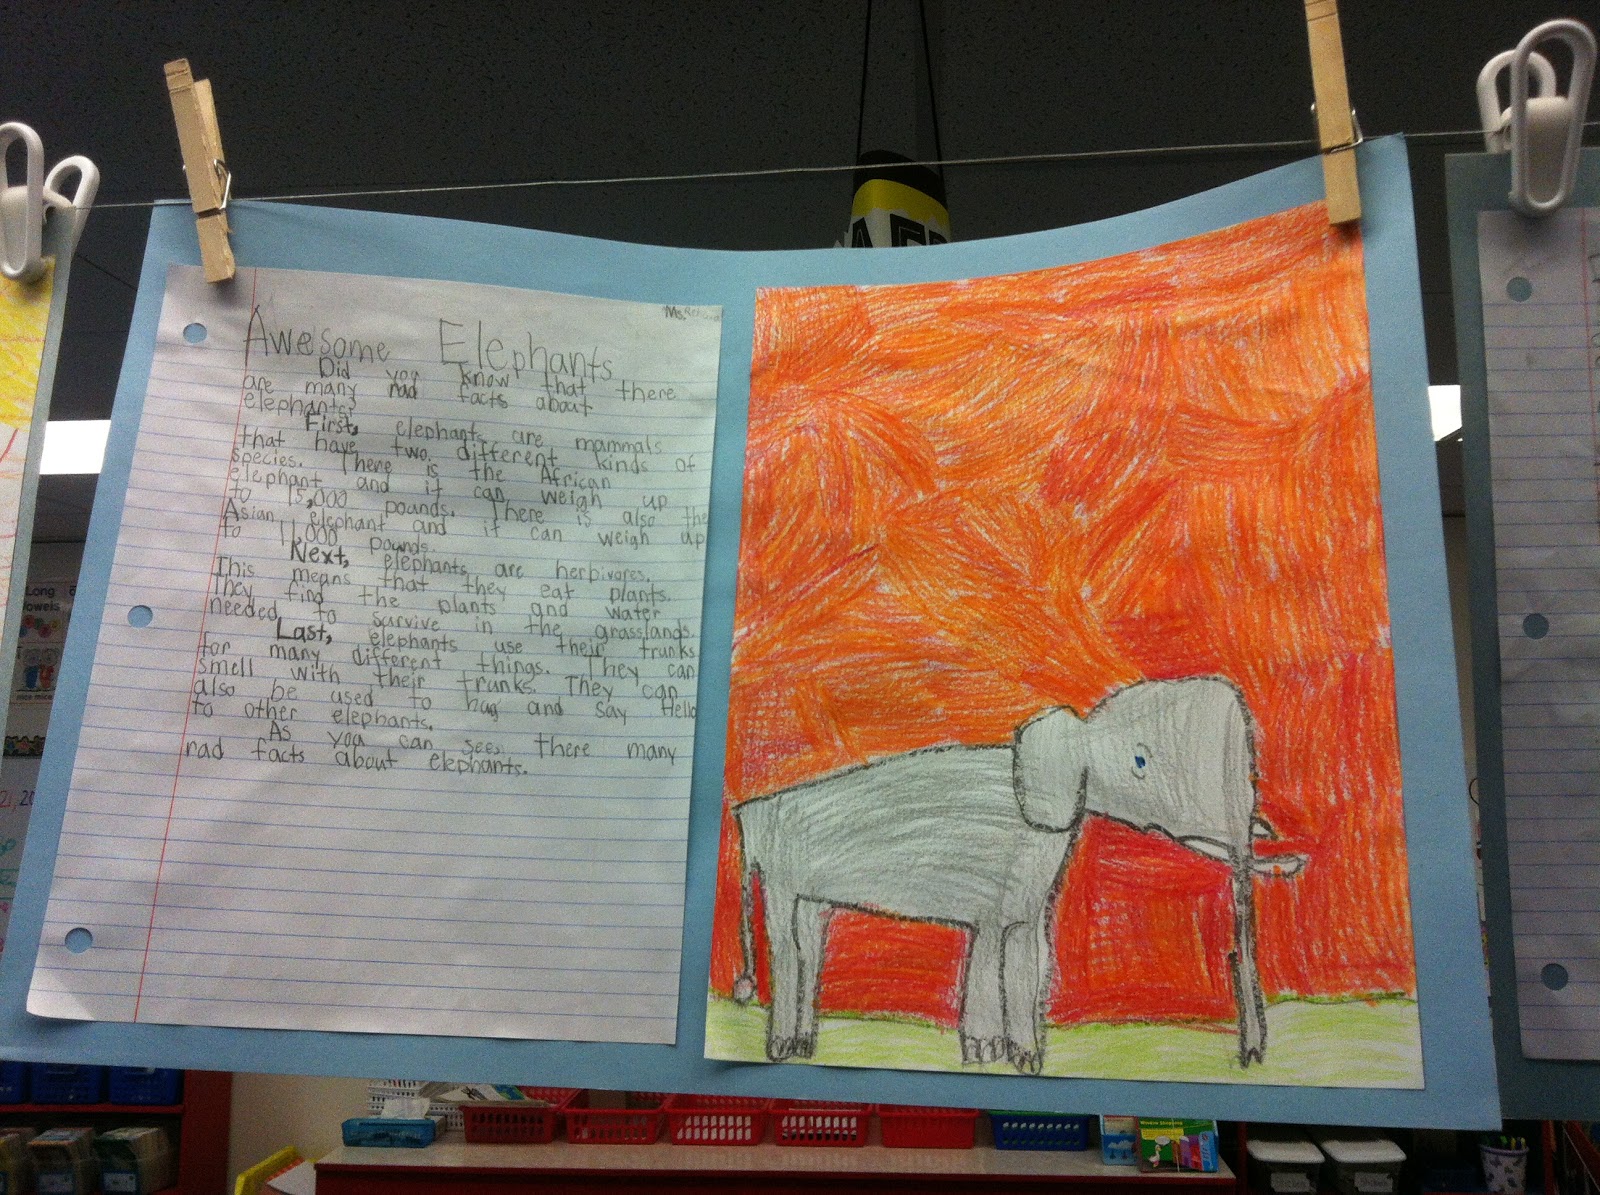 Ms.
Awesome Elephants
Did you know that there
are many rad facts about
elephants?
First, elephants are mammals
that have two different kinds of
species. There is the African
elephant and it can weigh up
to 15,000 pounds. There is also the
Asian elephant and it can weigh up
to 11,000 pounds.
Next, elephants are herbivores.
This means that they eat plants.
They find the plants and water
needed to survive in the grasslands.
Last, elephants use their trunks
for many different things. They can
smell with their trunks. They can
also be used to hug and say Hello
to other elephants.
As you can see, there many
rad facts about elephants.
Long
Vowels
21, 20